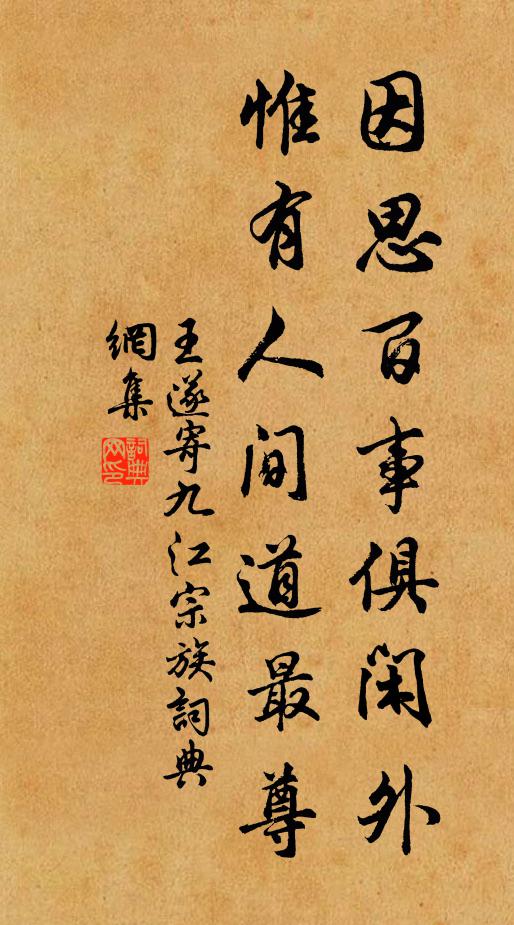 因思百事俱閑外
惟有人间道最尊
王遂寄九江宗族詞典
網集
詞典
网印